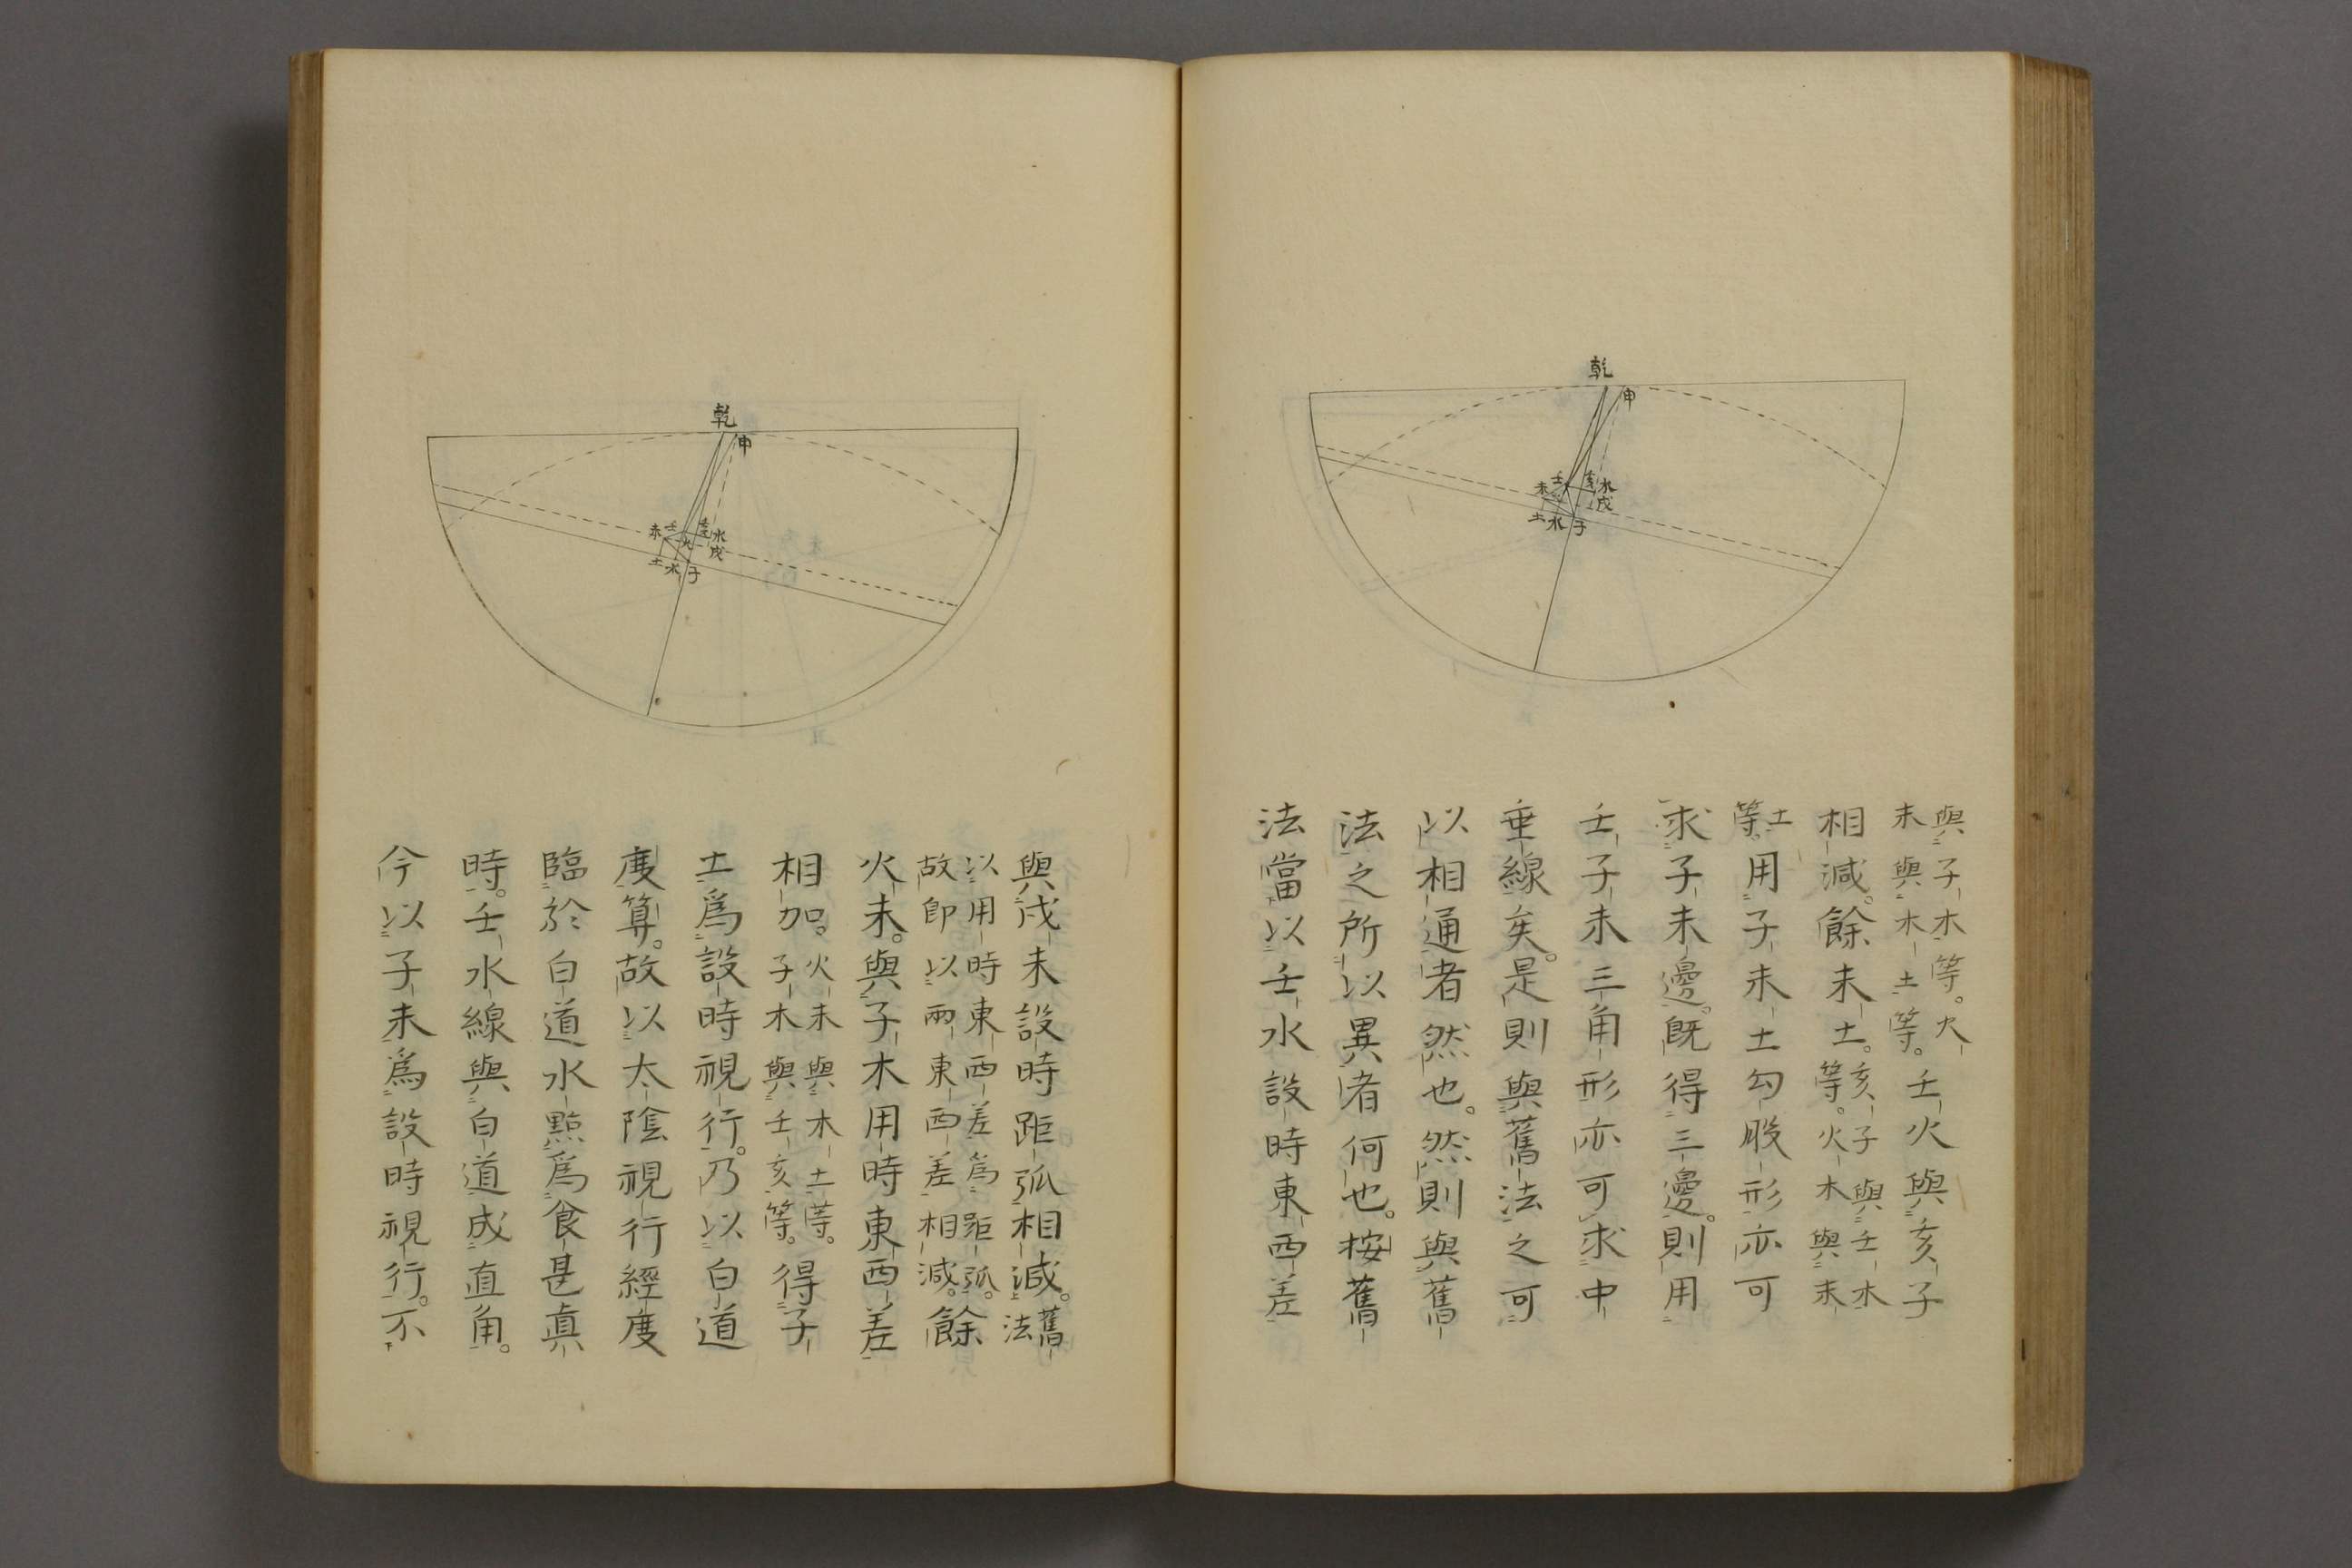 乾
申
壬
亥
水
戌
未
土
水
子
與子木等。火
未與木土等。
壬火與亥子
相減。餘未土。
亥子與壬木
等。火木與未
土
等。
用子未土勾股形亦可
求子未邊。既得三邊。則用
壬子未三角形亦可求中
垂線矣。是則與舊法之可
以相通者然也。然則與舊
法之所以異者何也。按舊
法當以壬水設時東西差
乾
申
壬
亥
水
戌
未
火
土
水
子
與戌未設時距弧相減。
舊
法
以用時東西差爲距弧。
故卽以兩東西差相減。
餘
火未。與子木用時東西差
相加。
火未與木土等。
子木與壬亥等。
得子
土爲設時視行。乃以白道
度算。故以太陰視行經度
臨於白道水點爲食甚眞
時。壬水線與白道成直角。
今以子未爲設時視行。不